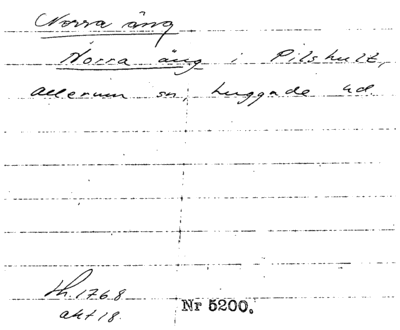 Norra äng
Norra äng i Pilshult,
Allerum sn, Luggude hd.
Lh. 1768
akt 18.
Nr 5200.